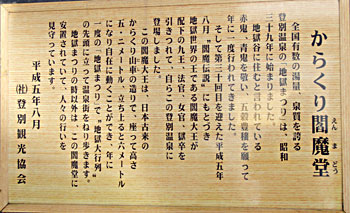 からくり閻魔堂
えんまどう
全国有数の湯量、泉質を誇る
登別温泉の「地獄まつり」は、昭和
三十九年に始まりました。
地獄谷に住むと言われている
赤鬼・青鬼を敬い、五穀豊穣を願って
年に一度行われてきました。
そして第三十回目を迎えた平成五年
八月、“閻魔伝説”にもとづき
地獄世界の王である閻魔大王が
配下の九王、法官、女官、獄卒を
引きつれて、自らこの登別温泉に
登場しました。
この閻魔大王は、日本古来の
からくり山車の造りで、座って高さ
五・二メートル、立ち上ると六メートル
になり自在に動くことができ、年に
一度の「地獄まつり」には“地獄大行列”
の先頭に立ち、温泉街をねり歩きます。
地獄まつりの時以外は、この閻魔堂に
安置されていて、人々の行いを
見守っています。
平成五年八月
(社)登別観光協会